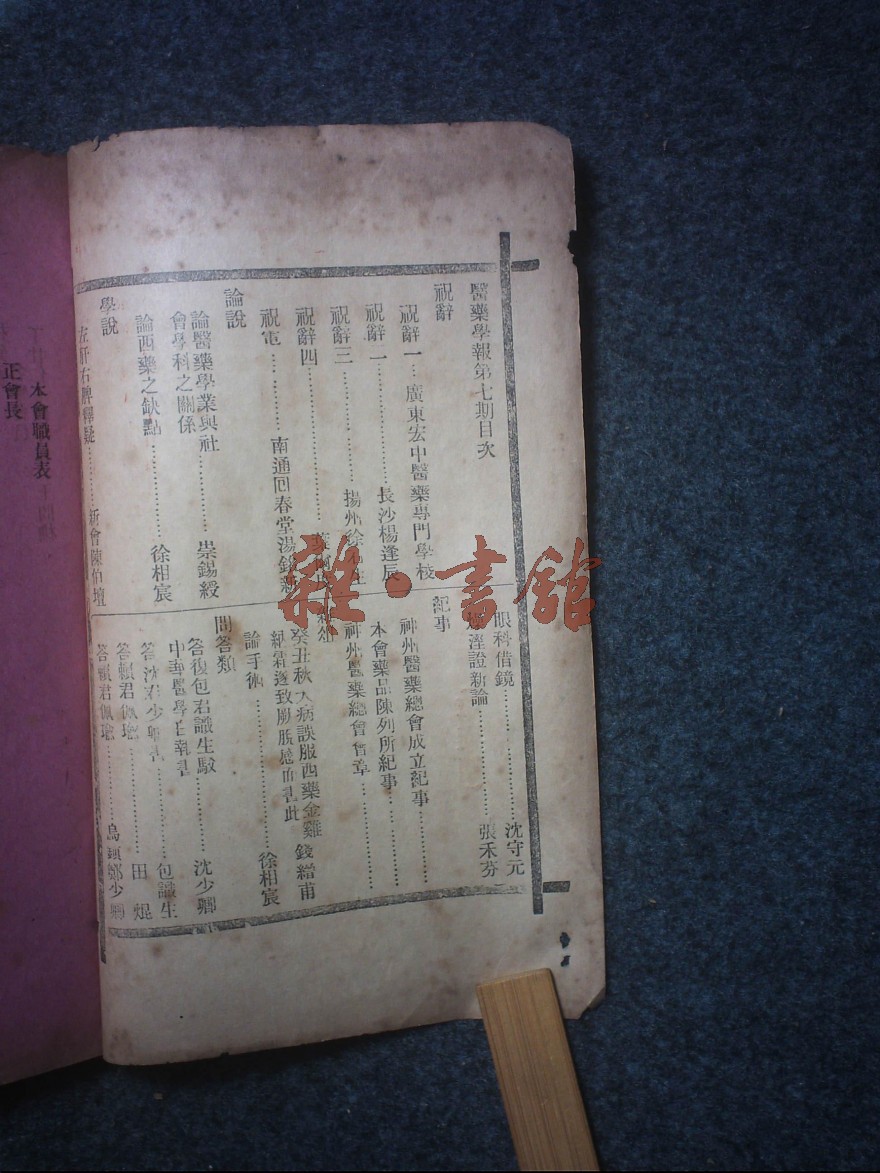 醫藥學報第七期目次
祝辭
祝辭一…廣東宏中醫藥專門學校
祝辭二…………長沙楊逢辰
祝辭三…………揚州徐
祝辭四…………
祝電…………南通回春堂湯
論說
論醫藥學業與社
會學科之關係…………崇錫綬
論西藥之缺點…………徐相宸
學說
左肝右脾釋疑…………新會陳伯壇
眼科借鏡…………沈守元
溼證新論…………張禾芬
紀事
神州醫藥總會成立紀事…………
本會藥品陳列所紀事…………
神州醫藥總會會章…………
癸丑秋大病誤服西藥金雞
錢縉甫
論手術…………徐相宸
問答類
答復包君識生駁
中華醫學白報書…………沈少卿
答沈君少卿書…………包識生
答賴君佩瑜…………田焜
答賴君佩瑜…………烏鎮鄭少卿
本會職員表
正會長
雜·書館